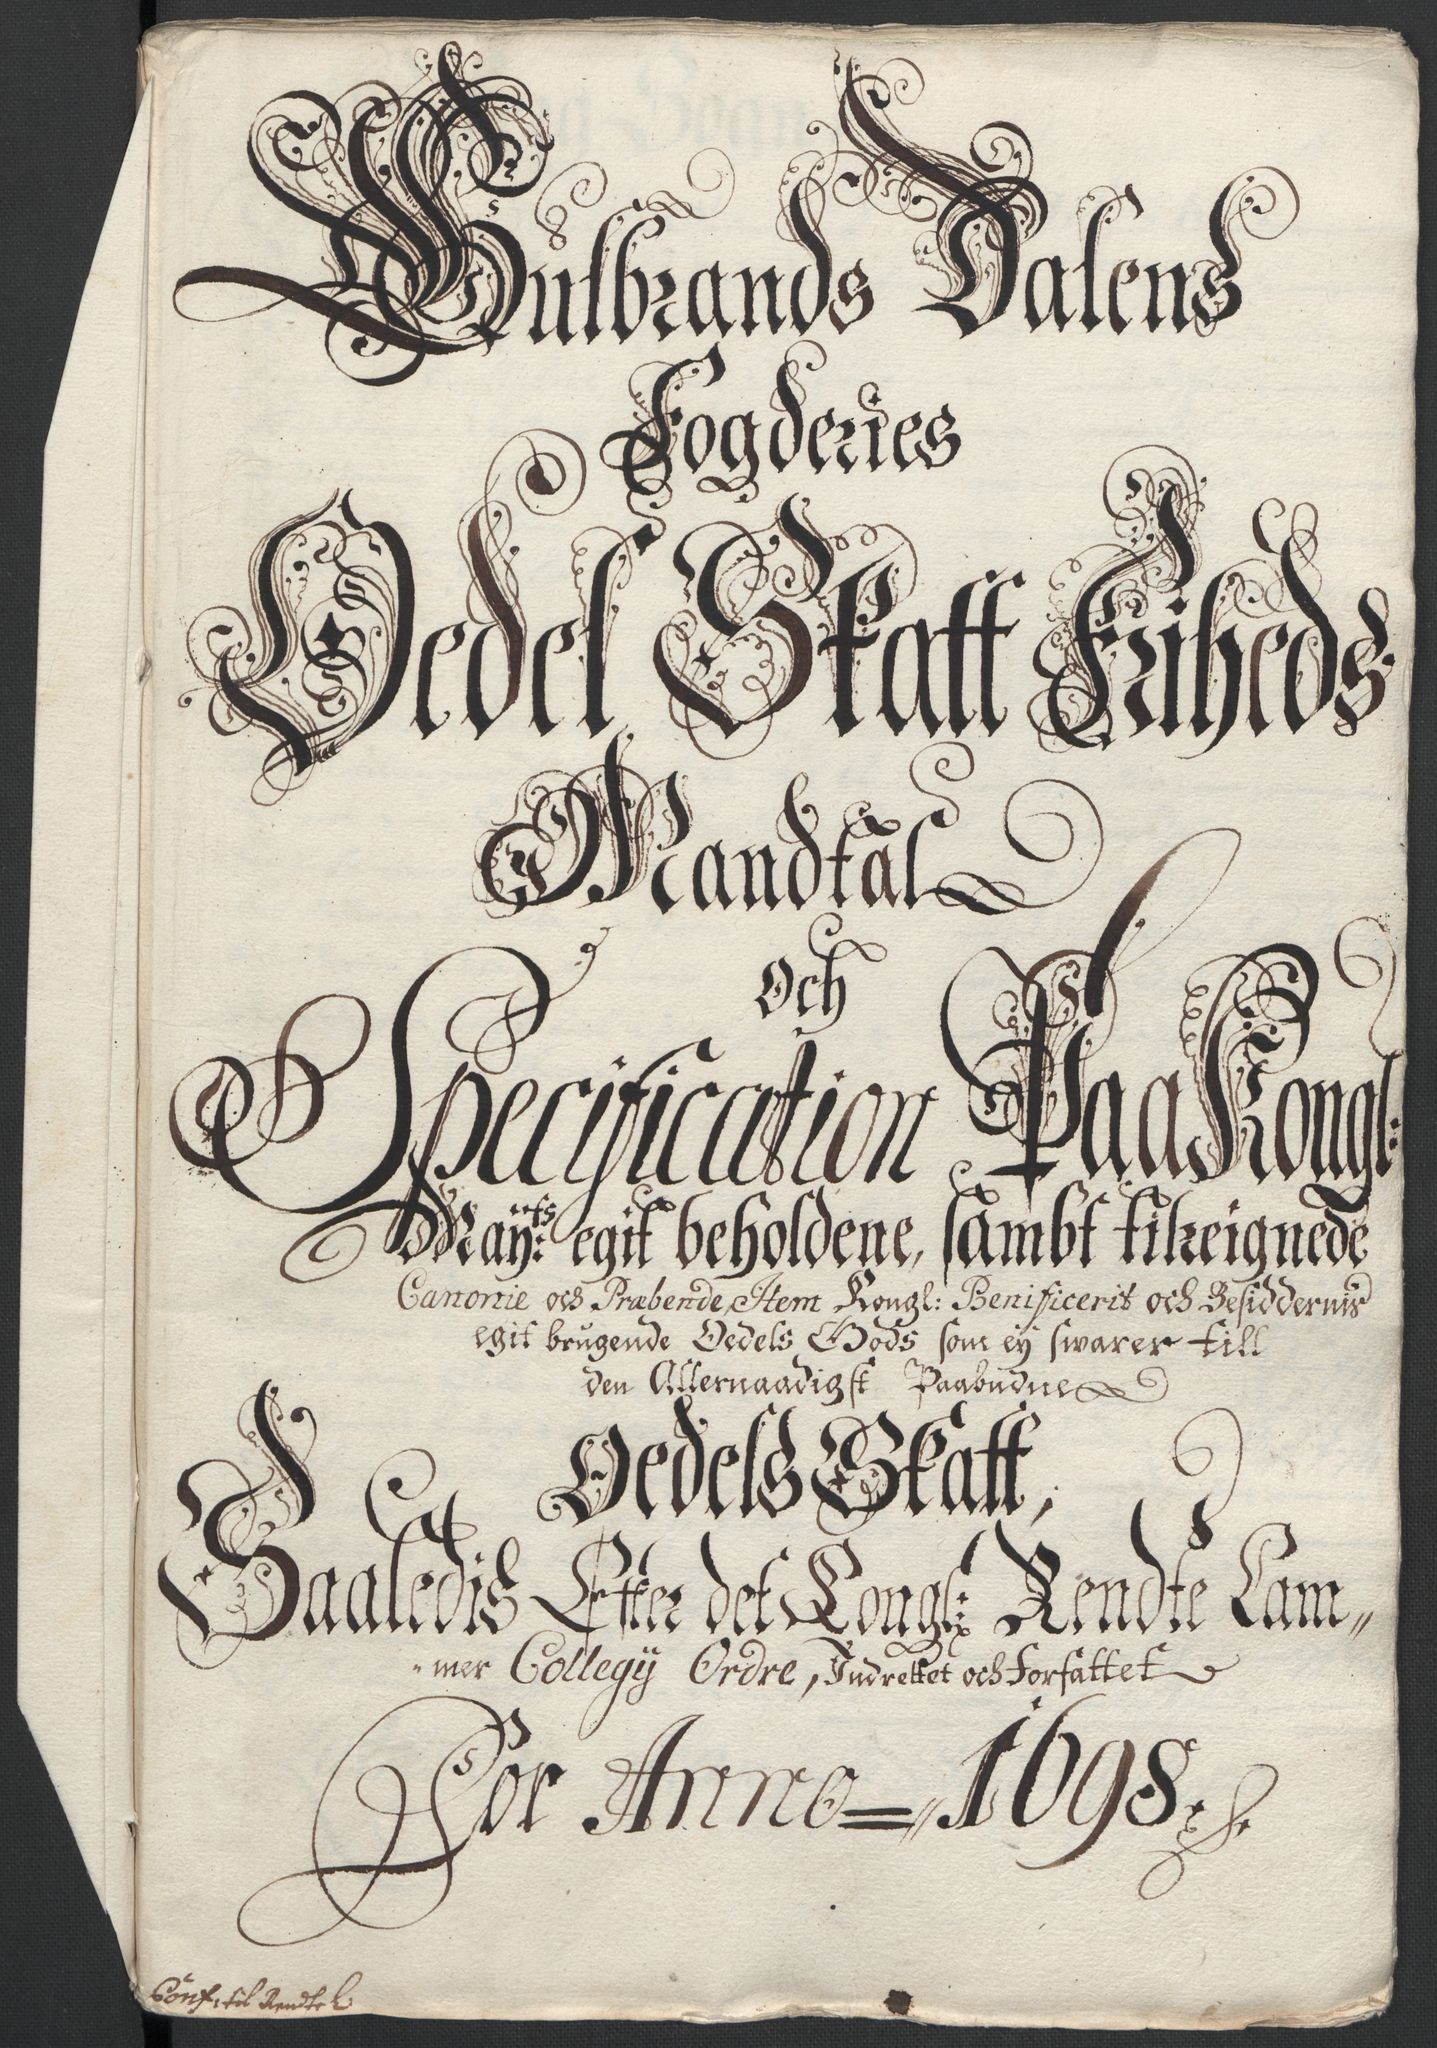 Gulbrands Dalens
Fogderies
Oedel Skatt Friheds
Mandtal
Och
Specification Paa Kongl:
Mayts: egit beholdene, sambt tilreignede
Canonie och Præbende, Item Kongl: Benificerit och Besiddernis
egit brugende Oedels Gods som ey swarer till
den Allernaadigst Paabudne
Oedels Skatt,
Saaledis Efter det Kongl: Rendte Cam„
„mer Collegij Ordre, Indrettet och Forfattet
For Anno = „ 1698
til